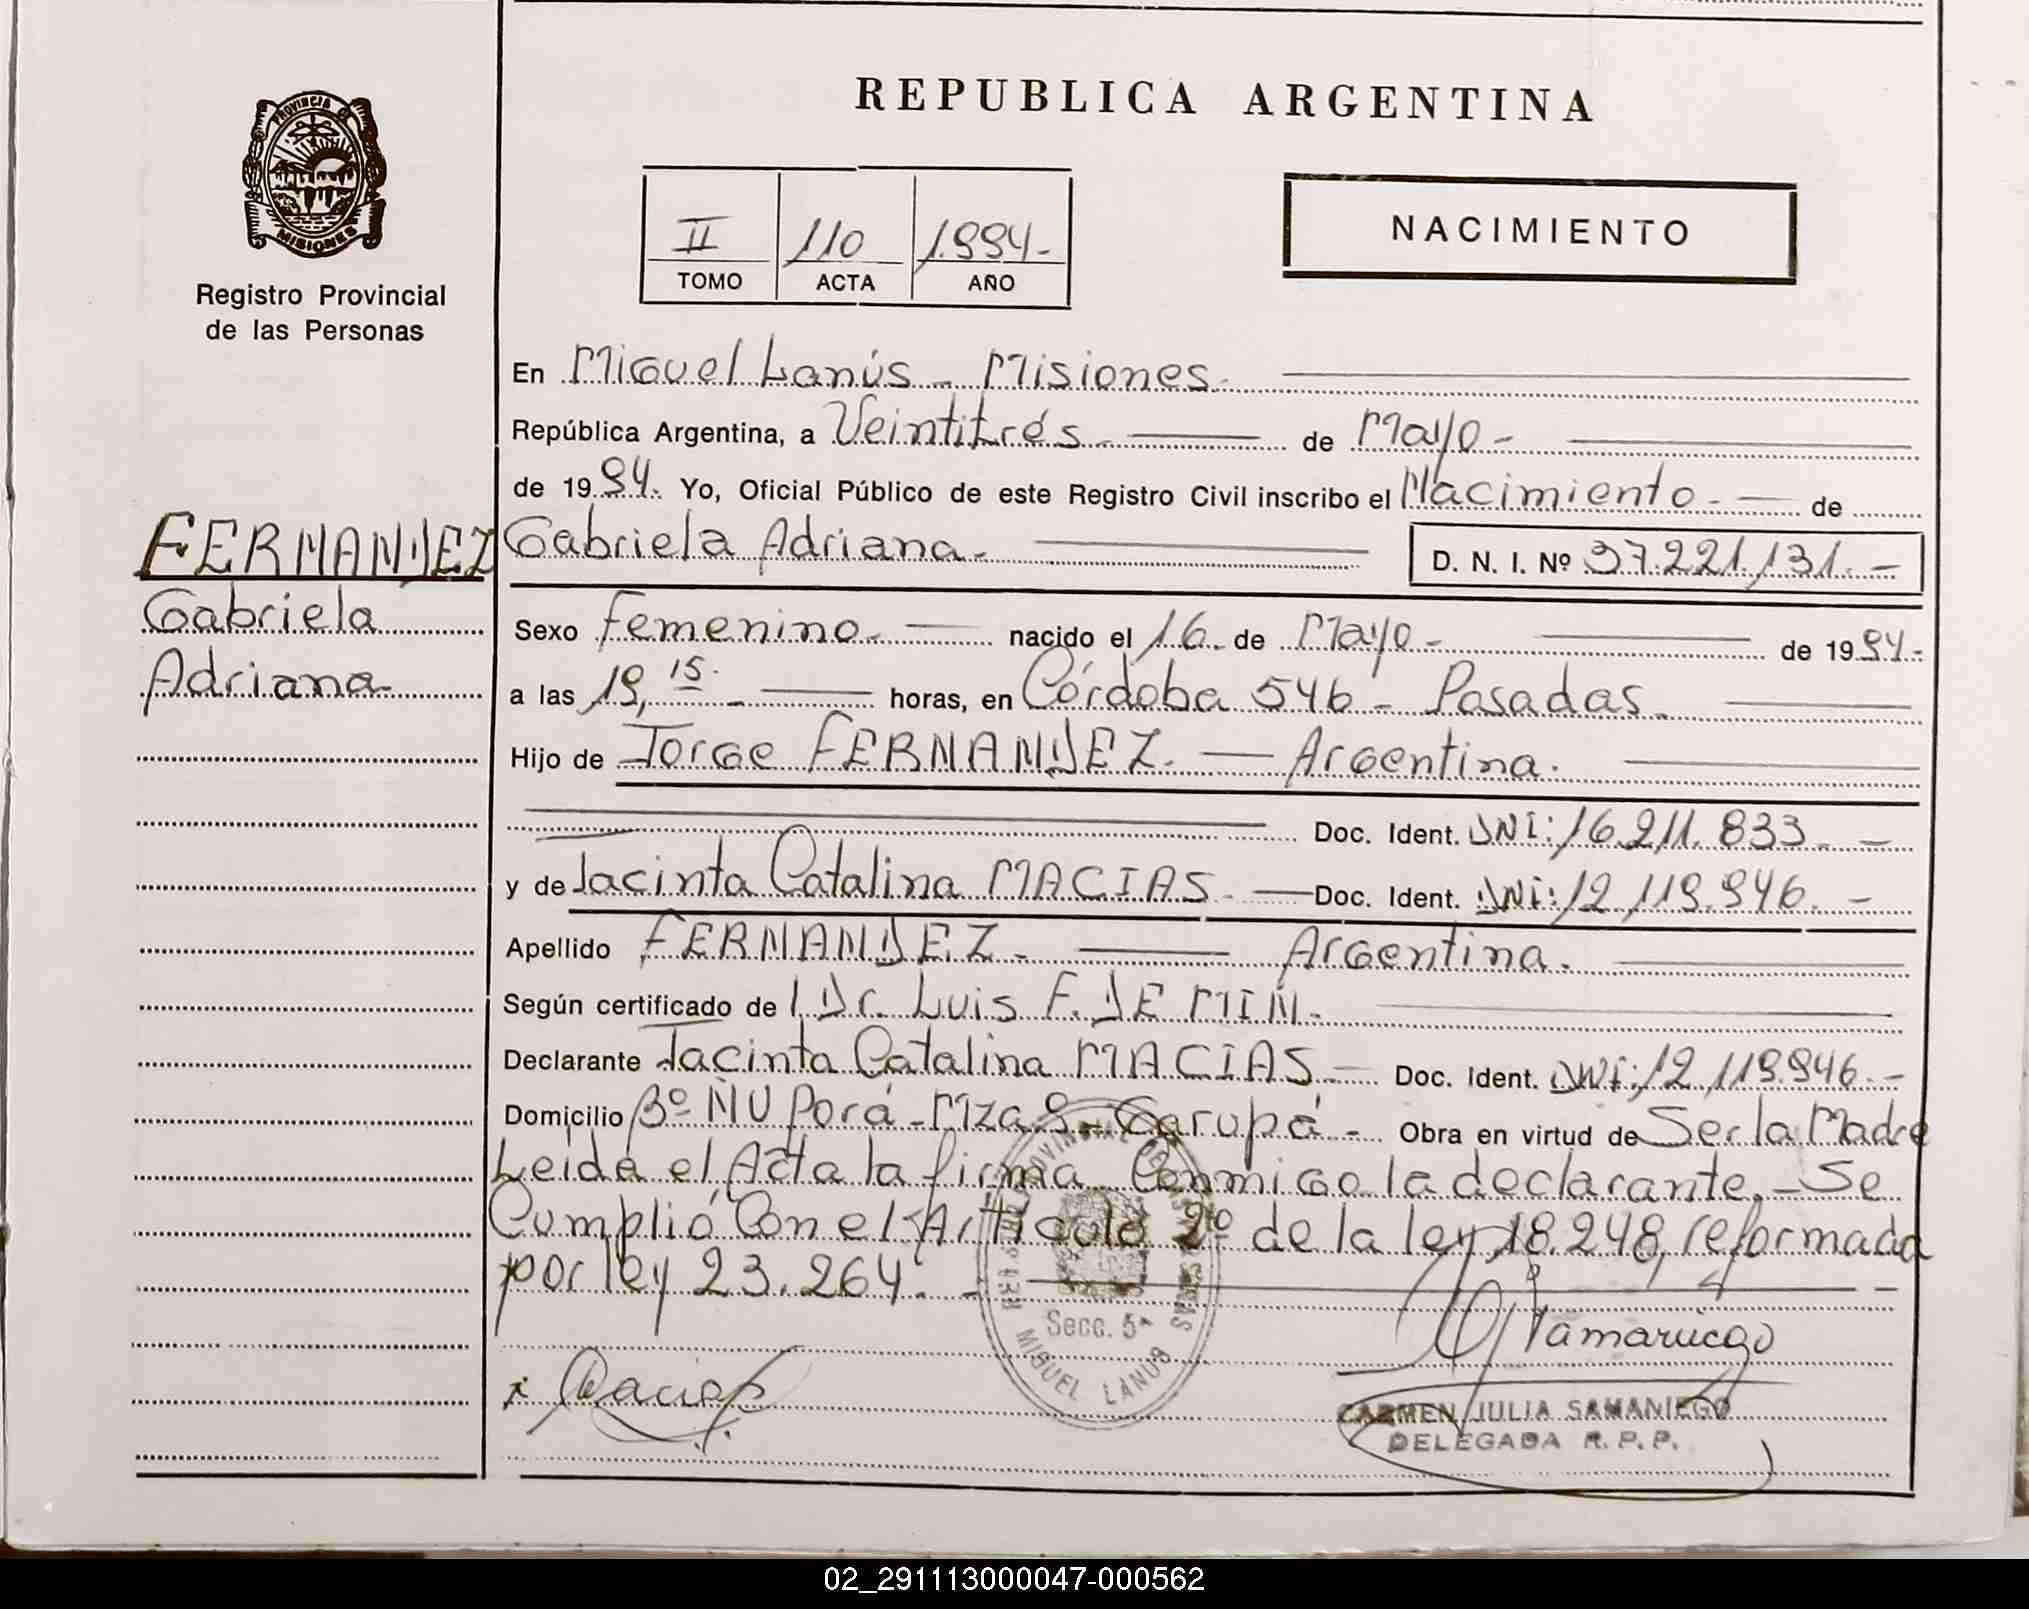 REPUBLICA ARGENTINA
PROVINCIA
MISIONES
Registro Provincial
de las Personas
II 110 1.994.-
TOMO ACTA AÑO
NACIMIENTO
En Miguel Lanús - Misiones.
República Argentina, a Veintitrés.- de Mayo.-
de 1994. Yo, Oficial Público de este Registro Civil inscribo el Nacimiento.- de
FERNANDEZ
Gabriela
Adriana.
Gabriela Adriana.- D. N. I. Nº 37.221.131.-
Sexo Femenino.- nacido el 16. de Mayo.- de 1994.-
a las 19,15.- horas, en Córdoba 546 - Posadas.
Hijo de Jorge FERNANDEZ.- Argentina.
Doc. Ident. DNI: 16.211.833.-
y de Jacinta Catalina MACIAS.- Doc. Ident. DNI: 12.119.946.-
Apellido FERNANDEZ.- Argentina.
Según certificado de l Dr. Luis F. DE MIN.-
Declarante Jacinta Catalina MACIAS.- Doc. Ident. DNI: 12.119.946.-
Domicilio Bº ÑU Porá - Mza 9 - Garupá.- Obra en virtud de Ser la Madre
Leida el Acta la firma Conmigo la declarante.- Se
Cumplió Con el Artículo 2º de la ley 18.248, reformada
por ley 23.264.-
Secc. 5ª
MIGUEL LANUS
Macias
CARMEN JULIA SAMANIEGO
DELEGADA R. P. P.
02_291113000047-000562